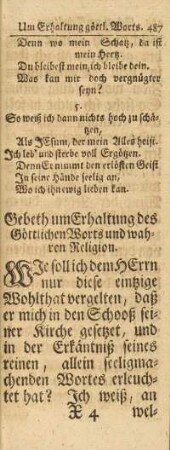 Um Erhaltung göttl. Worts. 487
Denn wo mein Schatz, da ist
mein Hertz.
Du bleibest mein, ich bleibe dein.
Was kan mir doch vergnügter
seyn?
5.
So weiß ich dann nichts hoch zu schä-
tzen,
Als JEsum, der mein Alles heist.
Ich leb' und sterbe voll Ergötzen.
Denn Er nimmt den erlösten Geist
In seine Hände seelig an,
Wo ich ihn ewig lieben kan.
Gebeth um Erhaltung des
Göttlichen Worts und wah-
ren Religion.
WIe soll ich dem HErrn
nur diese eintzige
Wohlthat vergelten, daß
er mich in den Schooß sei-
ner Kirche gesetzet, und
in der Erkäntniß seines
reinen, allein seeligma-
chenden Wortes erleuch-
tet hat? Ich weiß, an
X 4 wel-